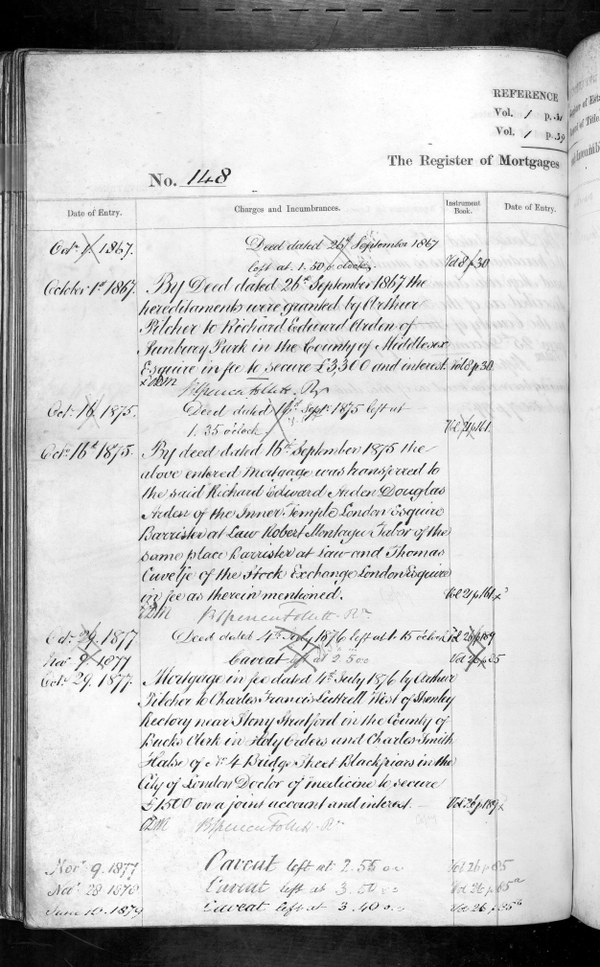 REFERENCE
Vol. 1 p.
Vol. 1 p. 39
The Register of Mortgages
No. 148
Date of Entry.
Charges and Incumbrances.
Instrument Book.
Date of Entry.
Octr 1. 1867.
Deed dated 26th September 1867
left at 1.50 o'clock.
Vol 8 p 30
October 1st 1867.
By Deed dated 26th September 1867 the
hereditaments were granted by Arthur
Pilcher to Richard Edward Arden of
Sunbury Park in the County of Middlesex
Esquire in fee to secure £3300 and interest.
Vol 8 p. 30.
B Spencer Follett. Rr
Octr 16. 1875.
Deed dated Sept. 1875 left at
1.35 o'clock
Vol 21 p 161
Octr 16th 1875.
By deed dated 16th September 1875 the
above entered Mortgage was transferred to
the said Richard Edward Arden Douglas
Arden of the Inner Temple London Esquire
Barrister at Law Robert Montagu Tabor of the
same place Barrister at Law and Thomas
Cuvelje of the Stock Exchange London Esquire
in fee as therein mentioned.
Vol 21 p 161
B Spencer Follett. Rr
Octr 29. 1877
Deed dated 4th July 1876 left at 1.15 o'clock
Vol 26 p 189
Novr 9. 1877
Caveat left at 2.5
Vol 26 p 85
Octr 29. 1877.
Mortgage in fee dated 4th July 1876 by Arthur
Pilcher to Charles Francis Luttrell West of Shenley
Rectory near Stony Stratford in the County of
Bucks Clerk in Holy Orders and Charles Smith
of No 4 Bridge Street Blackfriars in the
City of London Doctor of medicine to secure
£1500 on a joint account and interest.
Vol 26 p 189
B Spencer Follett. Rr
Novr 9. 1877
Caveat left at 2.55
Vol 26 p 85
28 1878
Caveat left at 3.50
Vol 26 p 85a
June 10. 1879
Caveat left at 3.40
Vol 26 p 85b